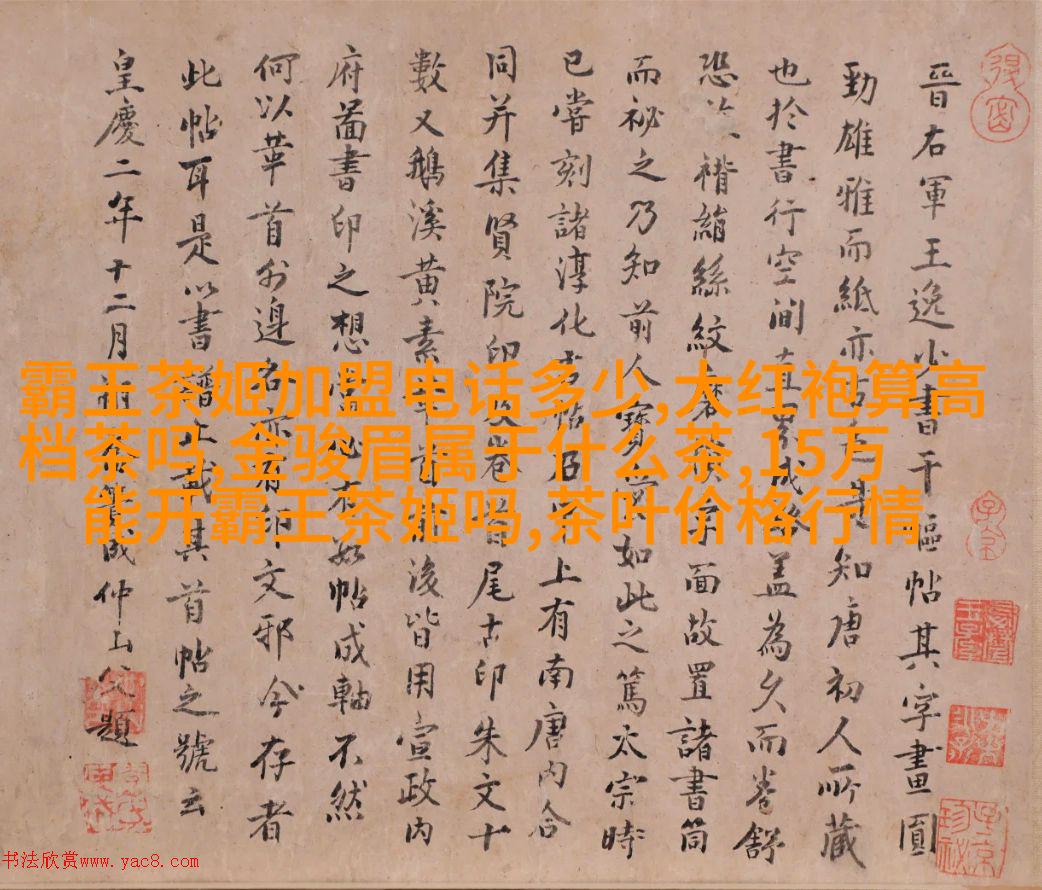 晉右軍王逸少書干嘔帖其字畫圓
勁雄雅而紙亦古
知唐初人所藏
也於書行空間
蓋為久而卷舒
褙綃絲紋
面故置諸書筒
而祕之乃知前人寶
如此之篤太宗時
已嘗刻諸淳化
上有南唐內合
同并集賢院印
首尾古印朱文十
數又鵝溪黃素
後皆用宣政內
府圖書印之想當
帖成軸不然
何以華首外邊
印文邪今存者
此帖耳是以書
其首帖之號云
皇慶二年十二月
成仲山父題
霸王茶姬加盟电话多少,大红袍算高
档茶吗,金骏眉属于什么茶,15万
能开霸王茶姬吗,茶叶价格行情
书法欣赏www.yac8.com